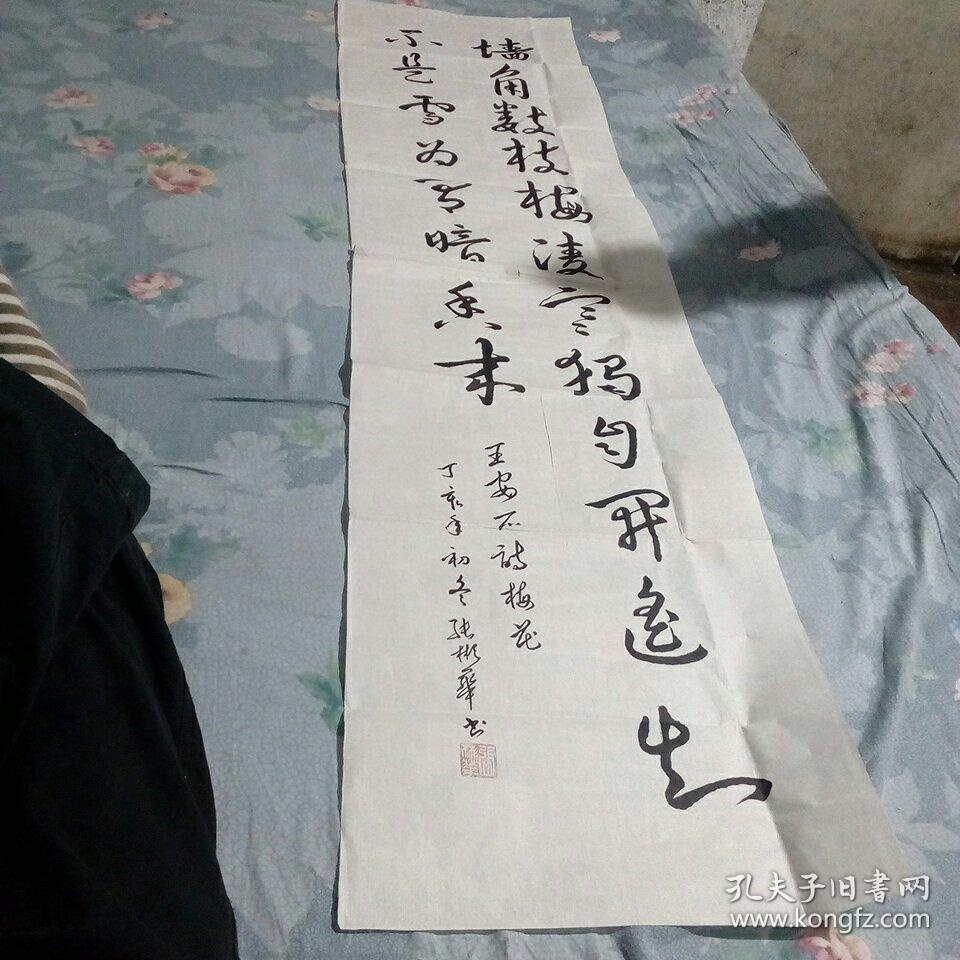 墙角数枝梅凌寒独自开遥知
不是雪为有暗香来
王安石诗梅花
丁亥年初冬张彬华书
孔夫子旧書网
www.kongfz.com